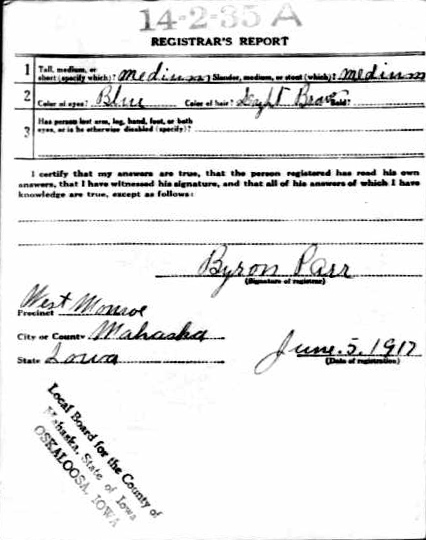 14-2-35 A
REGISTRAR'S REPORT
1 Tall, medium, or short (specify which)? medium Slender, medium, or stout (which)? medium
2 Color of eyes? Blue Color of hair? Light Brown Bald?
3 Has person lost arm, leg, hand, foot, or both eyes, or is he otherwise disabled (specify)?
I certify that my answers are true, that the person registered has read his own
answers, that I have witnessed his signature, and that all of his answers of which I have
knowledge are true, except as follows:
Byron Parr
(Signature of registrar)
Precinct West Monroe
City or County Mahaska
State Iowa
June. 5, 1917
(Date of registration)
Local Board for the County of
Mahaska, State of Iowa
OSKALOOSA, IOWA